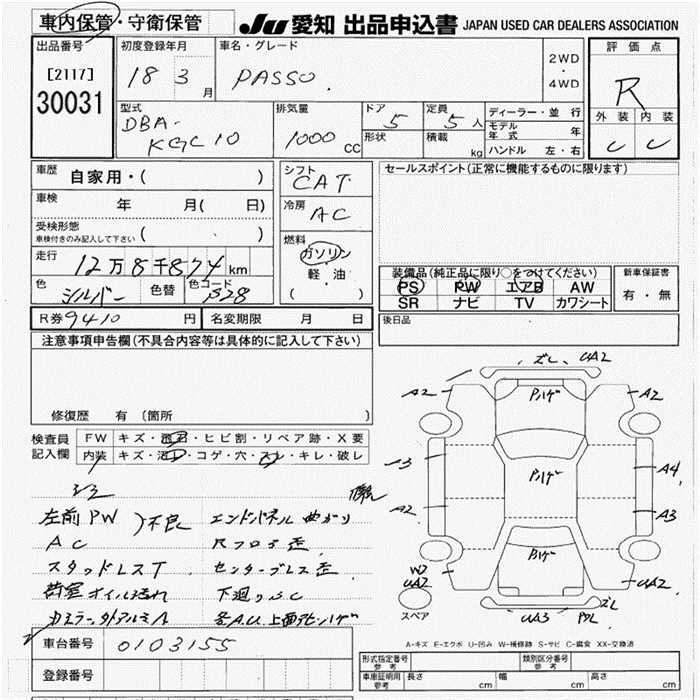 車内保管・守衛保管
JU 愛知 出品申込書 JAPAN USED CAR DEALERS ASSOCIATION
出品番号
[2117]
30031
初度登録年月
18 3 月
車名・グレード
PASSO
2WD
・
4WD
評価点
R
外装 内装
C C
型式
DBA-
KGC10
排気量
1000 cc
ドア 5
形状
定員 5 人
積載 kg
ディーラー・並行
モデル年式 年
ハンドル 左・右
車歴
自家用・( )
車検
年 月( 日)
受検形態
車検付きのみ記入して下さい ( )
走行
12万8千874km
色
シルバー
色替
色コード
S28
シフト
CAT
冷房
AC
燃料
ガソリン
軽・油
( )
セールスポイント(正常に機能するものに限ります)
装備品(純正品に限り○をつけてください)
PS PW エアB AW
SR ナビ TV カワシート
新車保証書
有・無
R券 9410 円
名変期限 月 日
後日品
注意事項申告欄(不具合内容等は具体的に記入して下さい)
修復歴 有 (箇所 )
検査員
記入欄
FW キズ・飛石・ヒビ割・リペア跡・X要
内装 キズ・汚レ・コゲ・穴・スレ・キレ・破レ
左前PW
AC
)不良
スタッドレスT
荷室オイル汚れ
エンドパネル曲がり
Rフロア歪
センターブレス歪
下廻りSC
ズレ UA2
A2
Pハゲ
A2
A3
A2
Pハゲ
A4
A3
Pハゲ
UA2
UA2
スペア
UA3
ズレ
A-キズ E-エクボ U-凹み W-補修跡 S-サビ C-腐食 XX-交換済
車台番号
0103155
登録番号
形式指定番号
参考
類別区分番号
参考
車庫証明用
参考
長さ cm
幅 cm
高さ cm